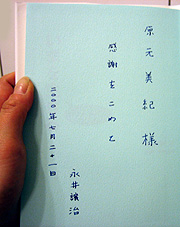 原元美紀様
感謝をこめて
二〇〇〇年七月二十一日
永井讓治